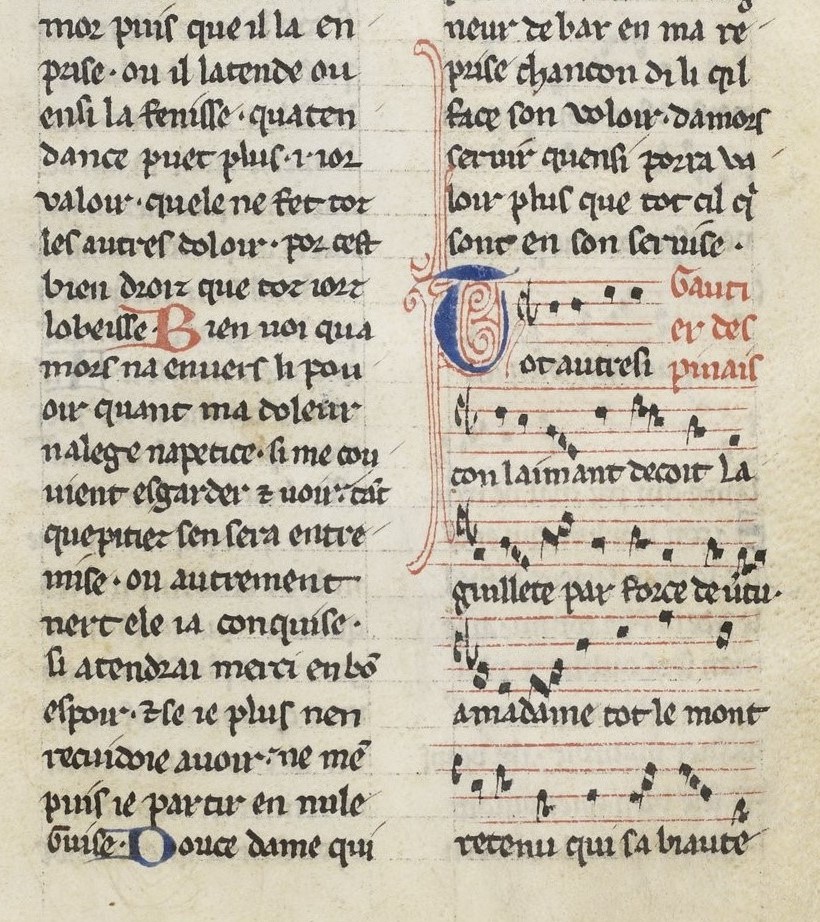 mor puis que il la en
prise · ou il latende ou
ensi la fenisse · quaten
dance puet plus · i · ior
valoir · quele ne fet tot
les autres doloir · por cest
bien droiz que toz iorz
lobeisse · Bien uoi qua
mors na enuers li pou
oir quant ma doleur
nalege napetice · si me cou
uient esgarder ⁊ uoir · tāt
que pitiez sen sera entre
mise · ou autrement
nert ele ia conquise ·
si atendrai merci en bō
espoir · ⁊ se ie plus nen
recuidoie auoir · ne mē
puis ie partir en nule
Guise · Douce dame qui
neur de bar en ma re
prise chancon di li qil
face son voloir · damors
seruir quensi porra va
loir plus que tot cil qi
sont en son seruise ·
Gauti
er des
Tot autresi pinais
con laimant decoit La
guillete par force de uertu ·
a madame tot le mont
retenu qui sa biaute